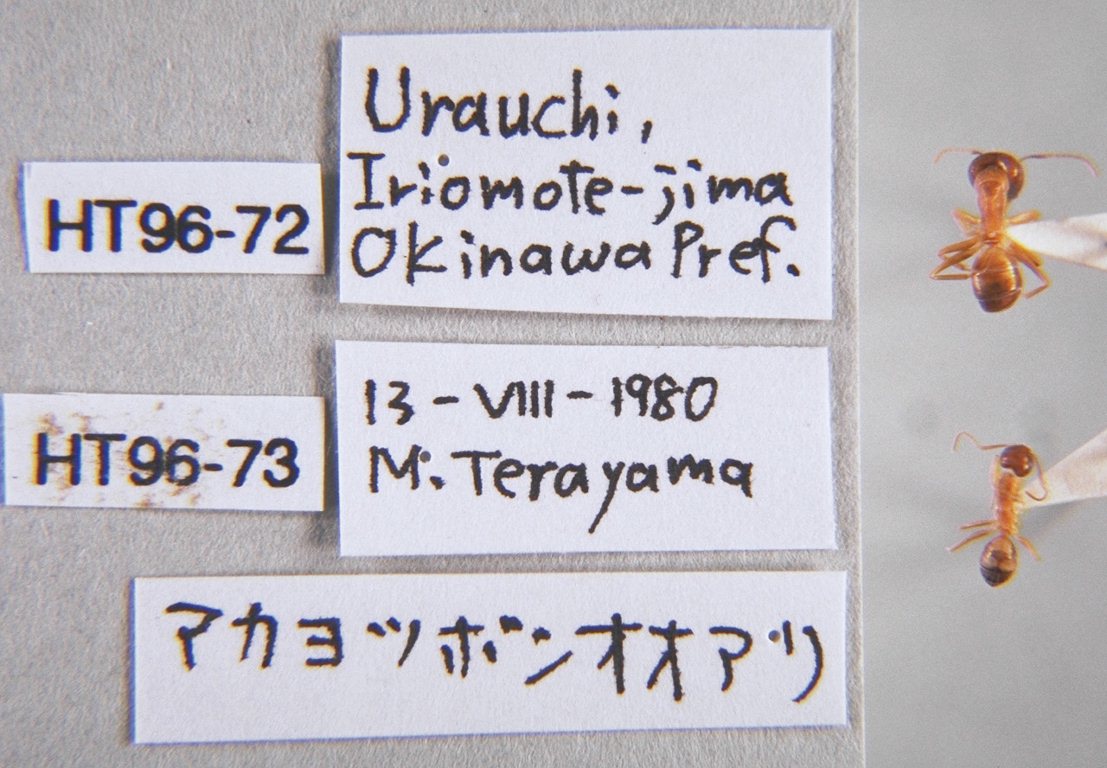 HT96-72
Urauchi,
Iriomote-jima
Okinawa Pref.
HT96-73
13-VIII-1980
M. Terayama
アカヨツボシオオアリ